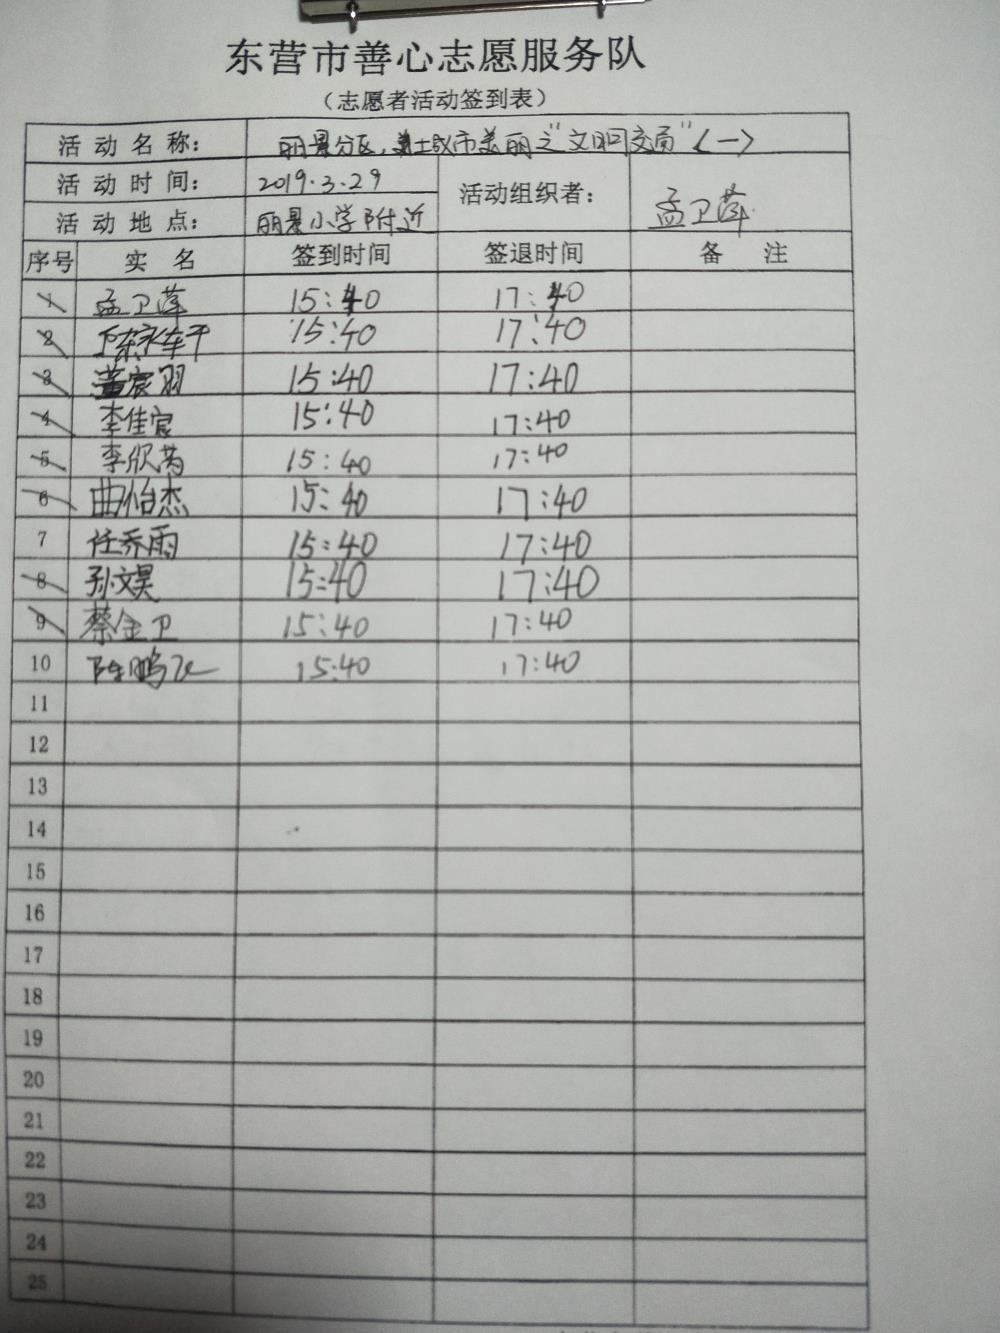 东营市善心志愿服务队
（志愿者活动签到表）
活动名称： 丽景分区，城市美丽之“文明交员”〈一〉
活动时间： 2019.3.29 活动组织者： 孟卫萍
活动地点： 丽景小学附近
序号 实名 签到时间 签退时间 备注
1 孟卫萍 15:40 17:40
2 15:40 17:40
3 董宸羽 15:40 17:40
4 李佳宸 15:40 17:40
5 李欣芮 15:40 17:40
6 曲怡杰 15:40 17:40
7 任乔雨 15:40 17:40
8 孙文昊 15:40 17:40
9 蔡金卫 15:40 17:40
10 陈鹏飞 15:40 17:40
11
12
13
14
15
16
17
18
19
20
21
22
23
24
25